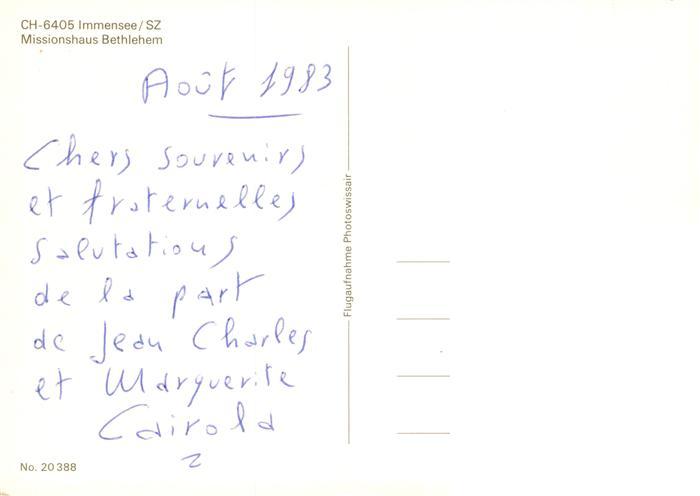 CH-6405 Immensee/SZ
Missionshaus Bethlehem
Août 1983
Chers souvenirs
et fraternelles
salutations
de la part
de Jean Charles
et Marguerite
Cairola
Flugaufnahme Photoswissair
No. 20 388